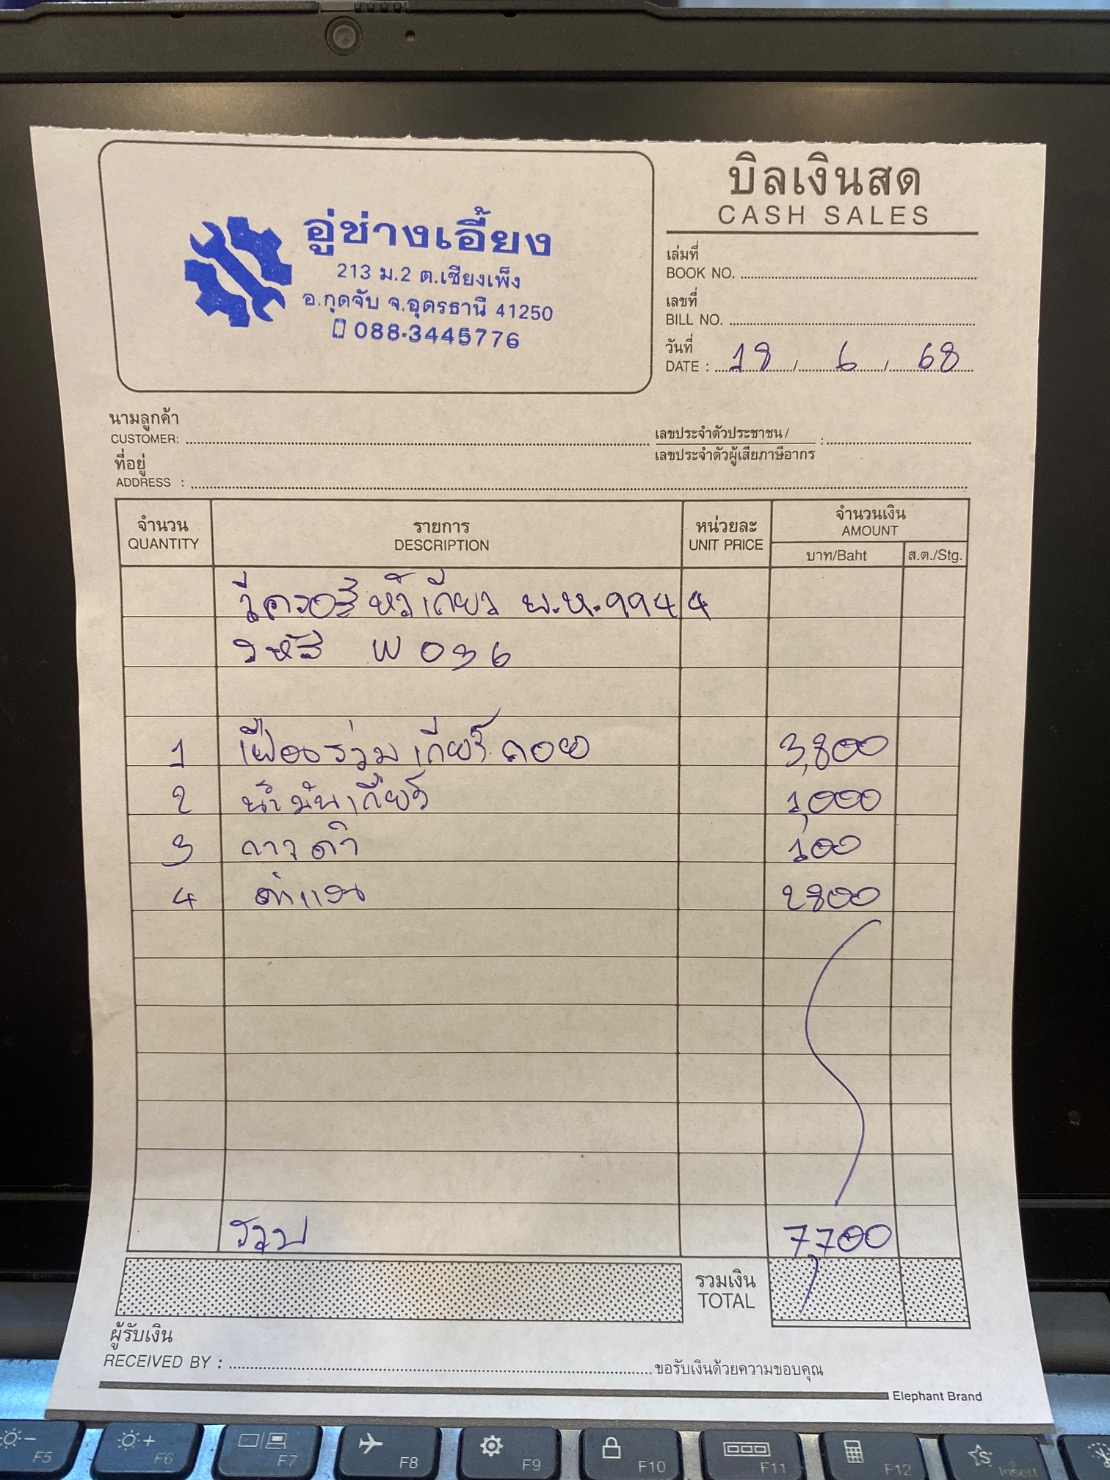 บิลเงินสด
CASH SALES
อู่ช่างเอี้ยง
213 ม.2 ต.เชียงเพ็ง
อ.กุดจับ จ.อุดรธานี 41250
088-3445776
เล่มที่
BOOK NO.
เลขที่
BILL NO.
วันที่
DATE : 19 / 6 / 68
นามลูกค้า
CUSTOMER:
เลขประจำตัวประชาชน /
เลขประจำตัวผู้เสียภาษีอากร :
ที่อยู่
ADDRESS :
จำนวน รายการ หน่วยละ จำนวนเงิน
QUANTITY DESCRIPTION UNIT PRICE AMOUNT
บาท/Baht ส.ต./Stg.
หัวเกียว 9944
รหัส W 036
1 เฟืองร่วมเกียร์ถอย 3,800
2 น้ำมันเกียร์ 1,000
3 กาวดำ 100
4 ค่าแรง 2800
รวม 7,700
รวมเงิน
TOTAL
ผู้รับเงิน
RECEIVED BY : ขอรับเงินด้วยความขอบคุณ
Elephant Brand
F5 F6 F7 F8 F9 F10 F11 F12 Insert